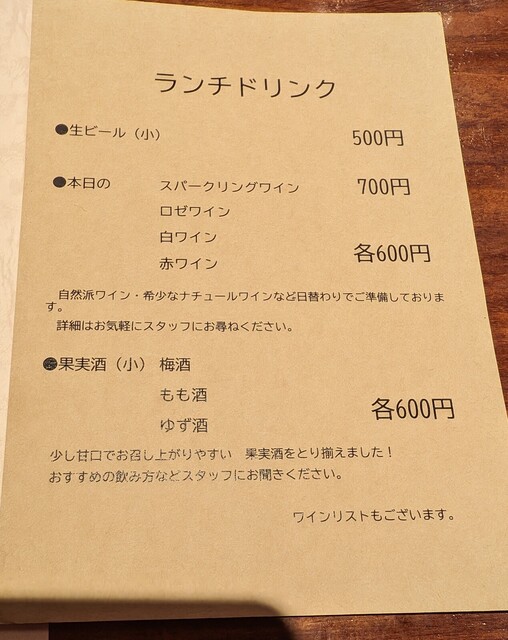 ランチドリンク
●生ビール（小） 500円
●本日の スパークリングワイン 700円
ロゼワイン
白ワイン 各600円
赤ワイン
自然派ワイン・希少なナチュールワインなど日替わりでご準備しておりま
す。
詳細はお気軽にスタッフにお尋ねください。
●果実酒（小） 梅酒
もも酒 各600円
ゆず酒
少し甘口でお召し上がりやすい　果実酒をとり揃えました！
おすすめの飲み方などスタッフにお聞きください。
ワインリストもございます。